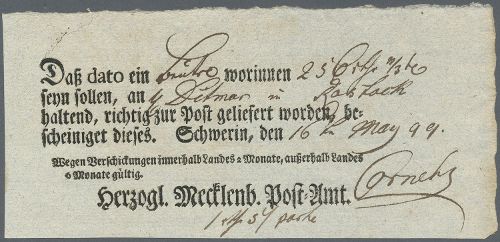 Daß dato ein Beutel worinnen 25
seyn sollen, an H Ditmar in Rostock
haltend, richtig zur Post geliefert worden, be-
scheiniget dieses. Schwerin, den 16 May 99.
Wegen Verschickungen innerhalb Landes 2 Monate, außerhalb Landes
6 Monate gültig.
Herzogl. Mecklenb. Post-Amt.